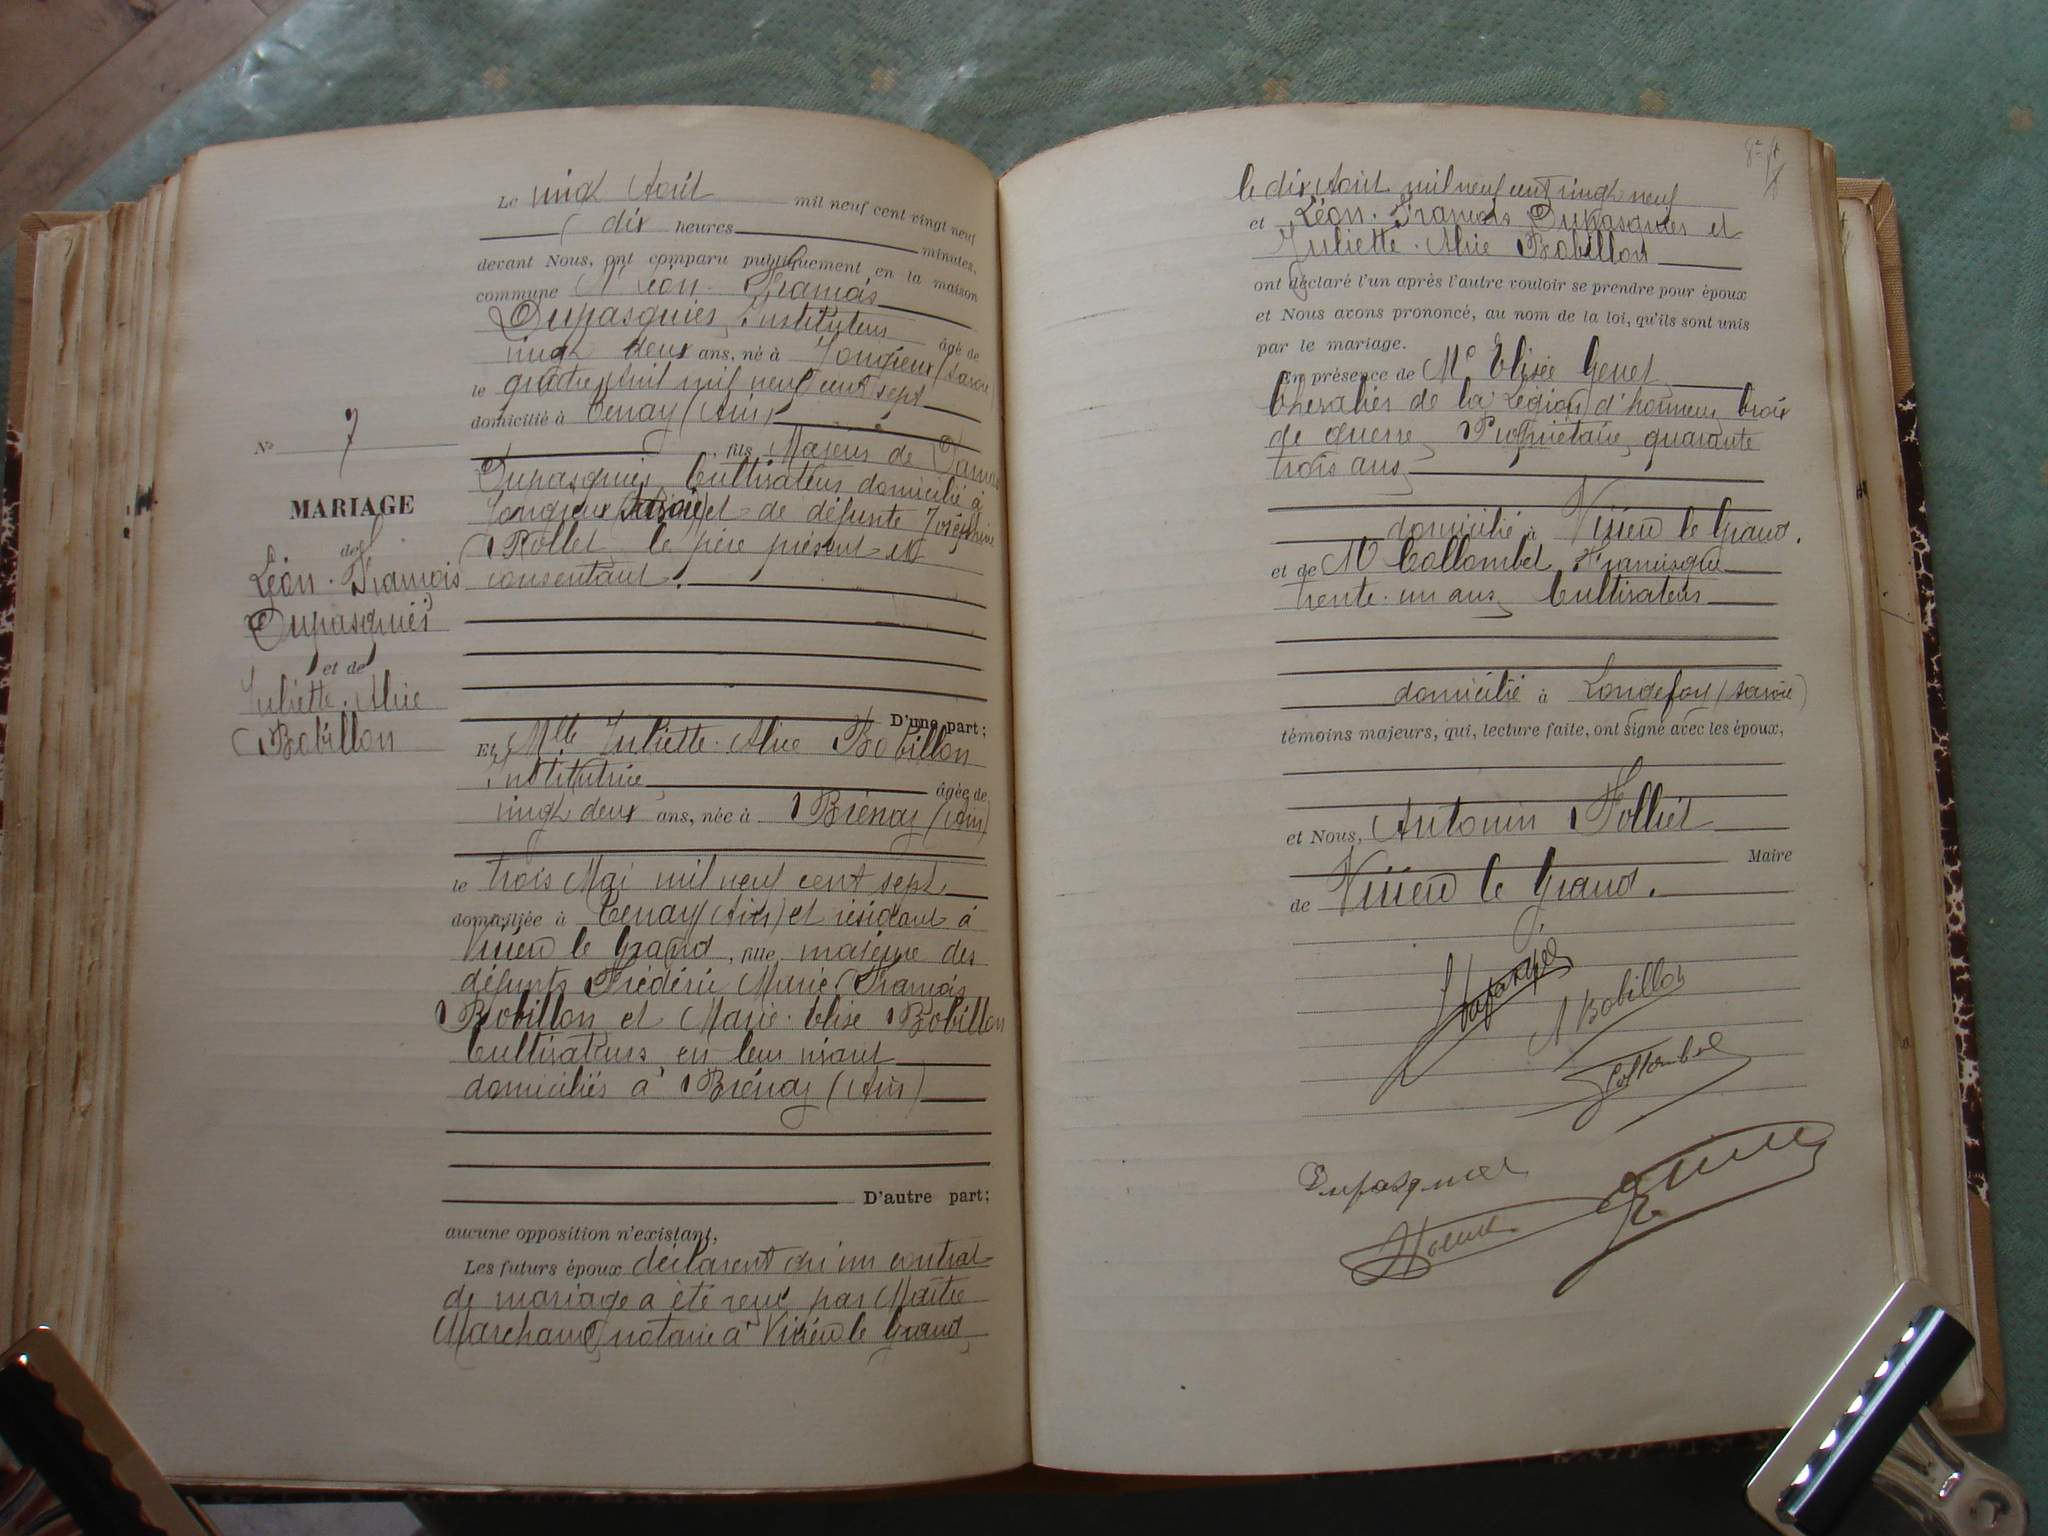 Le vingt Août mil neuf cent vingt neuf
dix heures minutes,
devant Nous, ont comparu publiquement en la maison
commune M Léon. François
Dupasquier, Instituteur âgé de
vingt deux ans, né à Jongieux (Savoie)
le quatre Avril mil neuf cent sept
domicilié à Tenay (Ain)
fils Majeur de
Dupasquier Cultivateur domicilié à
Jongieux (Savoie) et de défunte Joséphine
Rollet le père présent et
consentant.
No 7
MARIAGE
de
Léon. François
Dupasquier
et de
Juliette. Alice
Bobillon
D'une part;
Et Mlle Juliette. Alice Bobillon
Institutrice âgée de
vingt deux ans, née à Brénaz (Ain)
le trois Mai mil neuf cent sept
domiciliée à Tenay (Ain) et résidant à
Virieu le Grand, fille majeure des
défunts Frédéric Marie François
Bobillon et Marie. Elise Bobillon
Cultivateurs en leur vivant
domiciliés à Brénaz (Ain)
D'autre part;
aucune opposition n'existant,
Les futurs époux déclarent qu'un contrat
de mariage a été reçu par Maître
Marchand, notaire à Virieu le Grand,
le dix Août mil neuf cent vingt neuf
et Léon. François Dupasquier et
Juliette. Alice Bobillon
ont déclaré l'un après l'autre vouloir se prendre pour époux
et Nous avons prononcé, au nom de la loi, qu'ils sont unis
par le mariage.
En présence de Mr Elisée Genet
Chevalier de la Légion d'honneur, Croix
de guerre, Propriétaire, quarante
trois ans,
domicilié à Virieu le Grand.
et de M Collombet Francisque
trente. un ans, Cultivateur
domicilié à Longefoy (Savoie)
témoins majeurs, qui, lecture faite, ont signé avec les époux,
et Nous, Antonin Folliet
Maire
de Virieu le Grand.
Dupasquier
A Bobillon
Collombet
Dupasquier